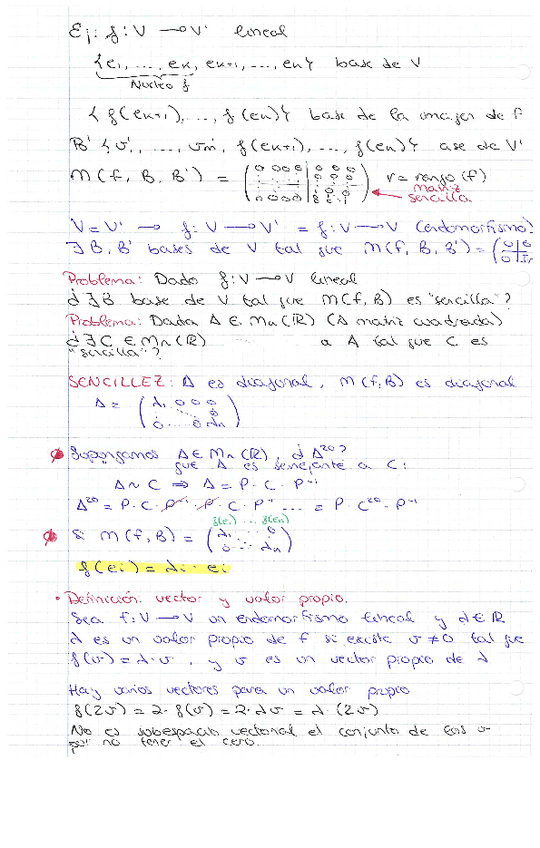 Ej: f: V → V' lineal
{e₁, ..., eₖ, eₖ₊₁, ..., eₙ} base de V
Núcleo f
{f(eₖ₊₁), ..., f(eₙ)} base de la imagen de f
B' {v₁', ..., vₘ', f(eₖ₊₁), ..., f(eₙ)} base de V'
M(f, B, B') = r = rango(f)
matriz
sencilla
V = V' → f: V → V' = f: V → V (endomorfismo)
∃ B, B' bases de V tal que M(f, B, B') =
Problema: Dado f: V → V lineal
¿∃ B base de V tal que M(f, B) es "sencilla"?
Problema: Dada A ∈ Mₙ(ℝ) (A matriz cuadrada)
¿∃ C ∈ Mₙ(ℝ) a A tal que C es
"sencilla"?
SENCILLEZ: A es diagonal, M(f,B) es diagonal
A = (λ₁ 0 0 0 0 ... 0 λₙ)
Supongamos A ∈ Mₙ(ℝ), ¿A²⁰?
que A es semejante a C:
A ~ C ⇒ A = P · C · P⁻¹
A²⁰ = P · C · P⁻¹ · P · C · P⁻¹ ... = P · C²⁰ · P⁻¹
f(e₁) ... f(eₙ)
Si M(f, B) = (λ₁ ... 0 0 ... λₙ)
f(eᵢ) = λᵢ · eᵢ
• Definición: vector y valor propio.
Sea f: V → V un endomorfismo lineal y λ ∈ ℝ
λ es un valor propio de f si existe v ≠ 0 tal que
f(v) = λ · v, y v es un vector propio de λ
Hay varios vectores para un valor propio
f(2v) = 2 · f(v) = 2 · λv = λ · (2v)
No es subespacio vectorial el conjunto de los v
por no tener el cero.